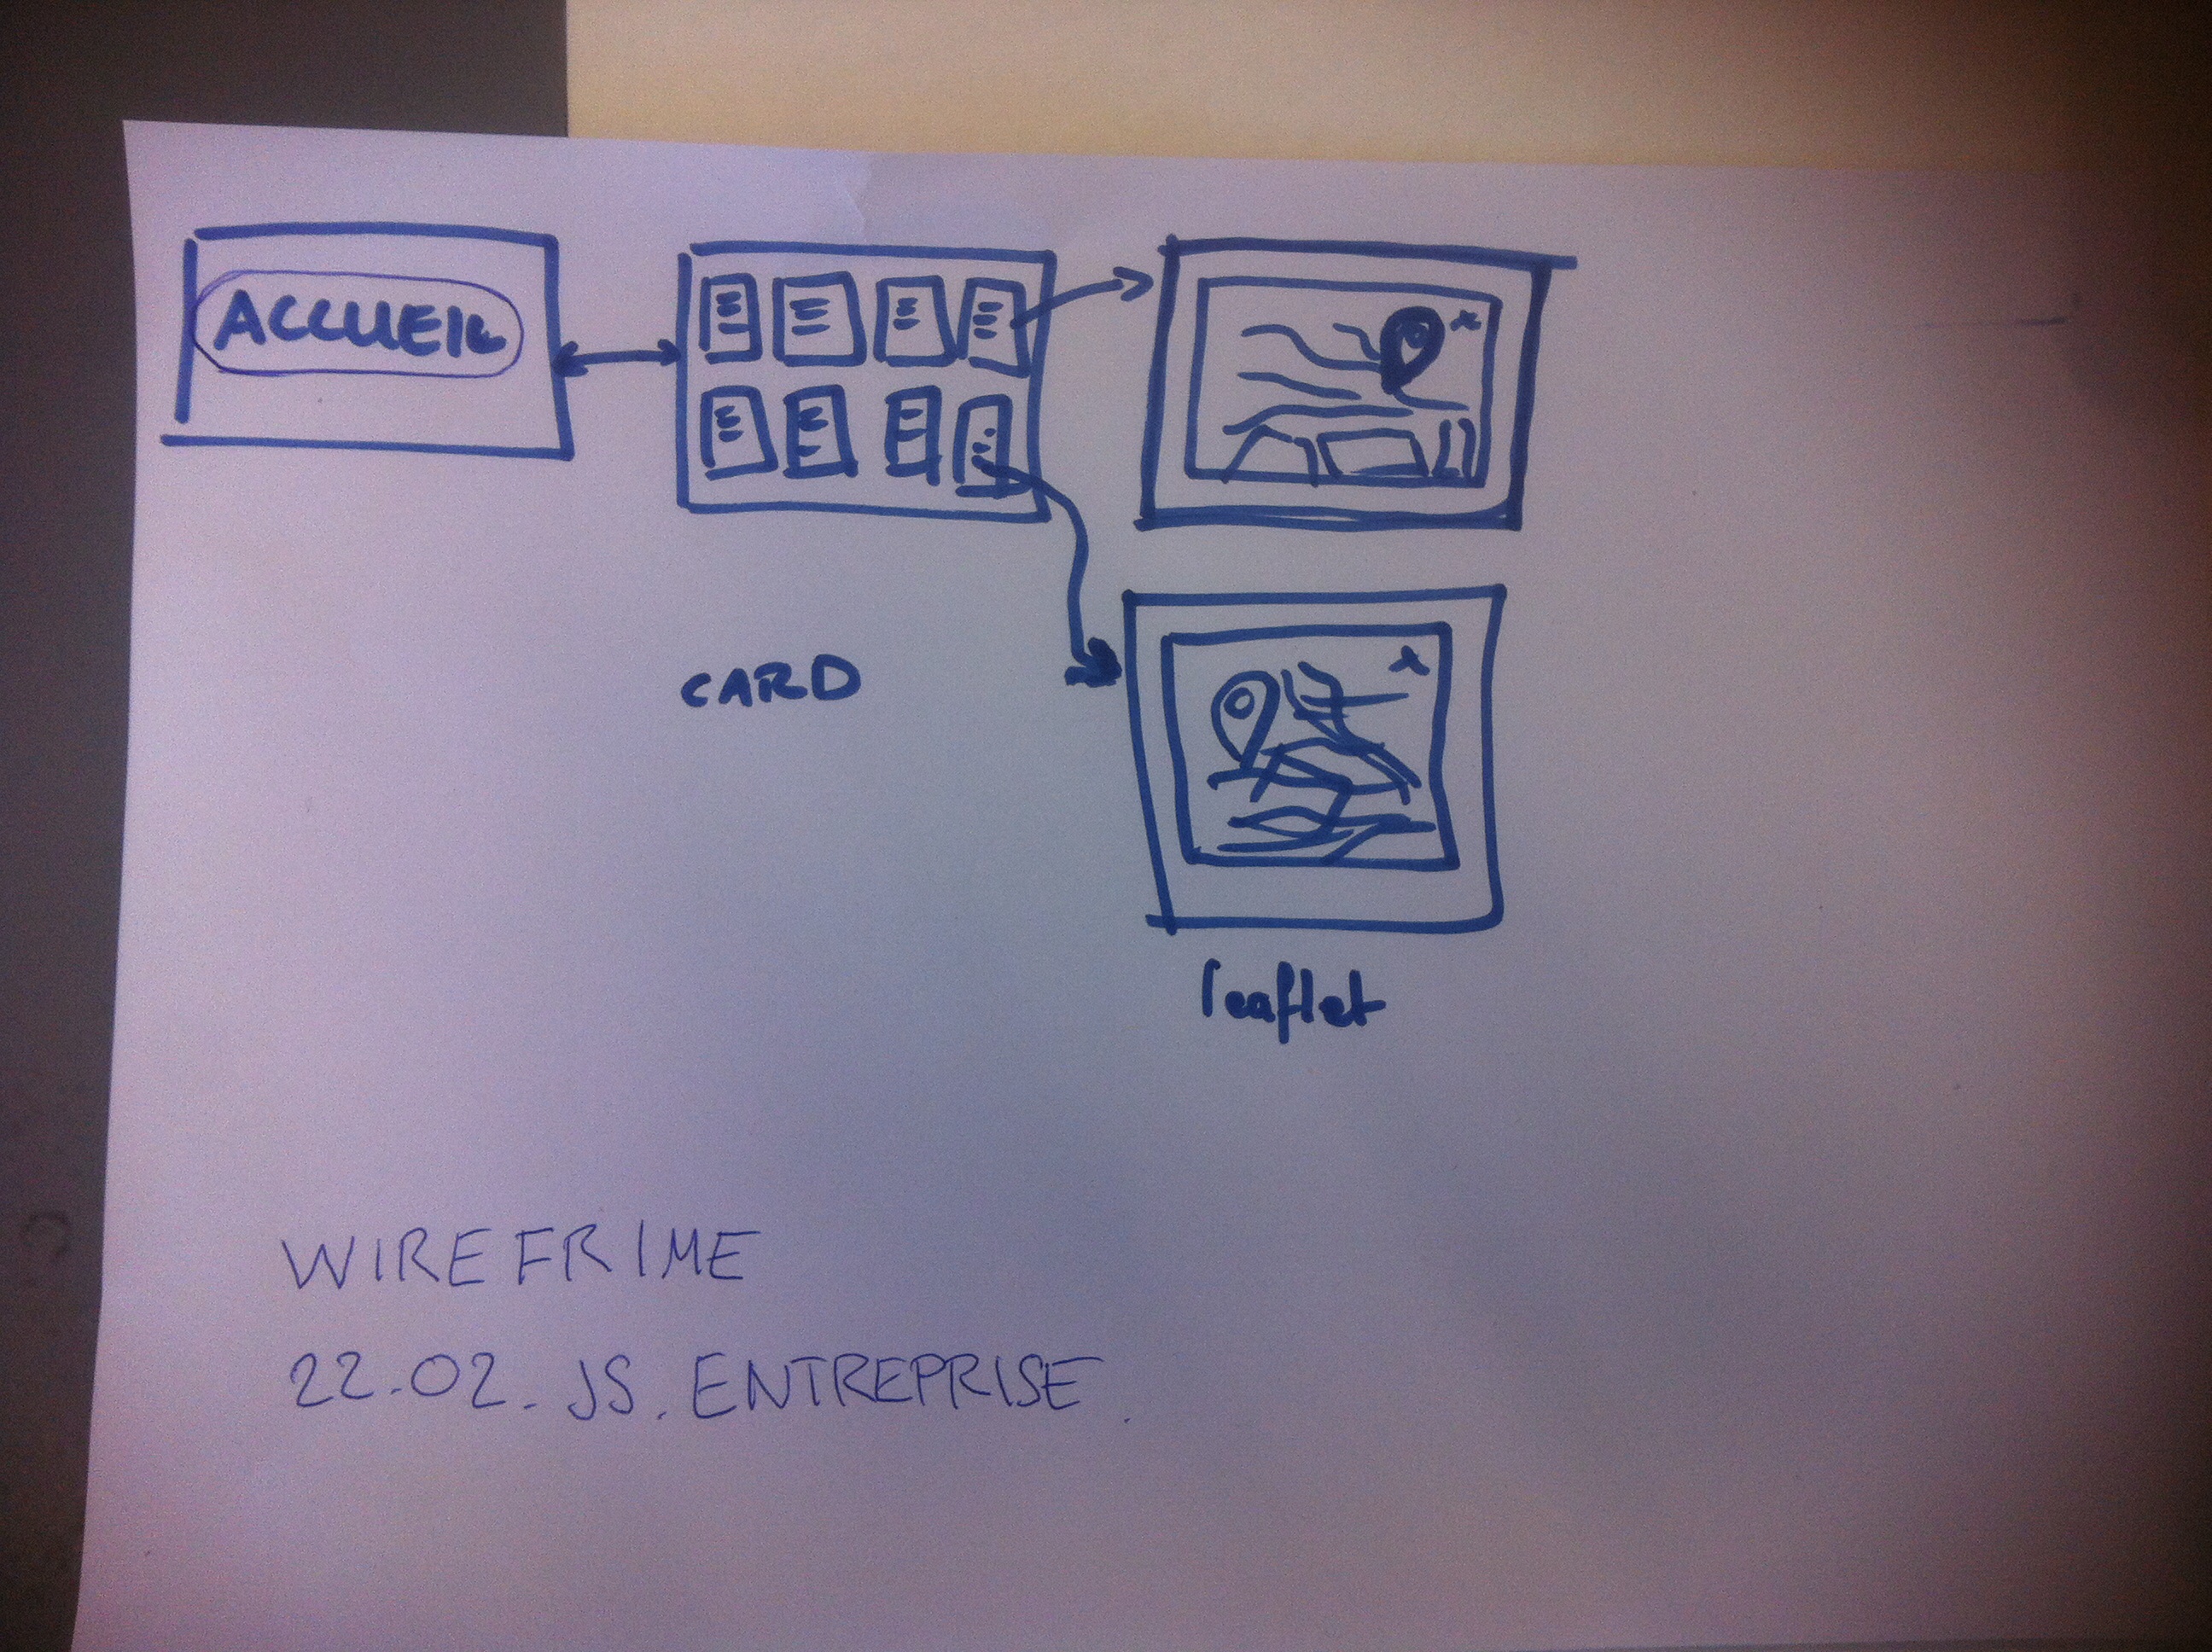 ACCUEIL
CARD
leaflet
WIREFRIME
22.02.JS.ENTREPRISE.